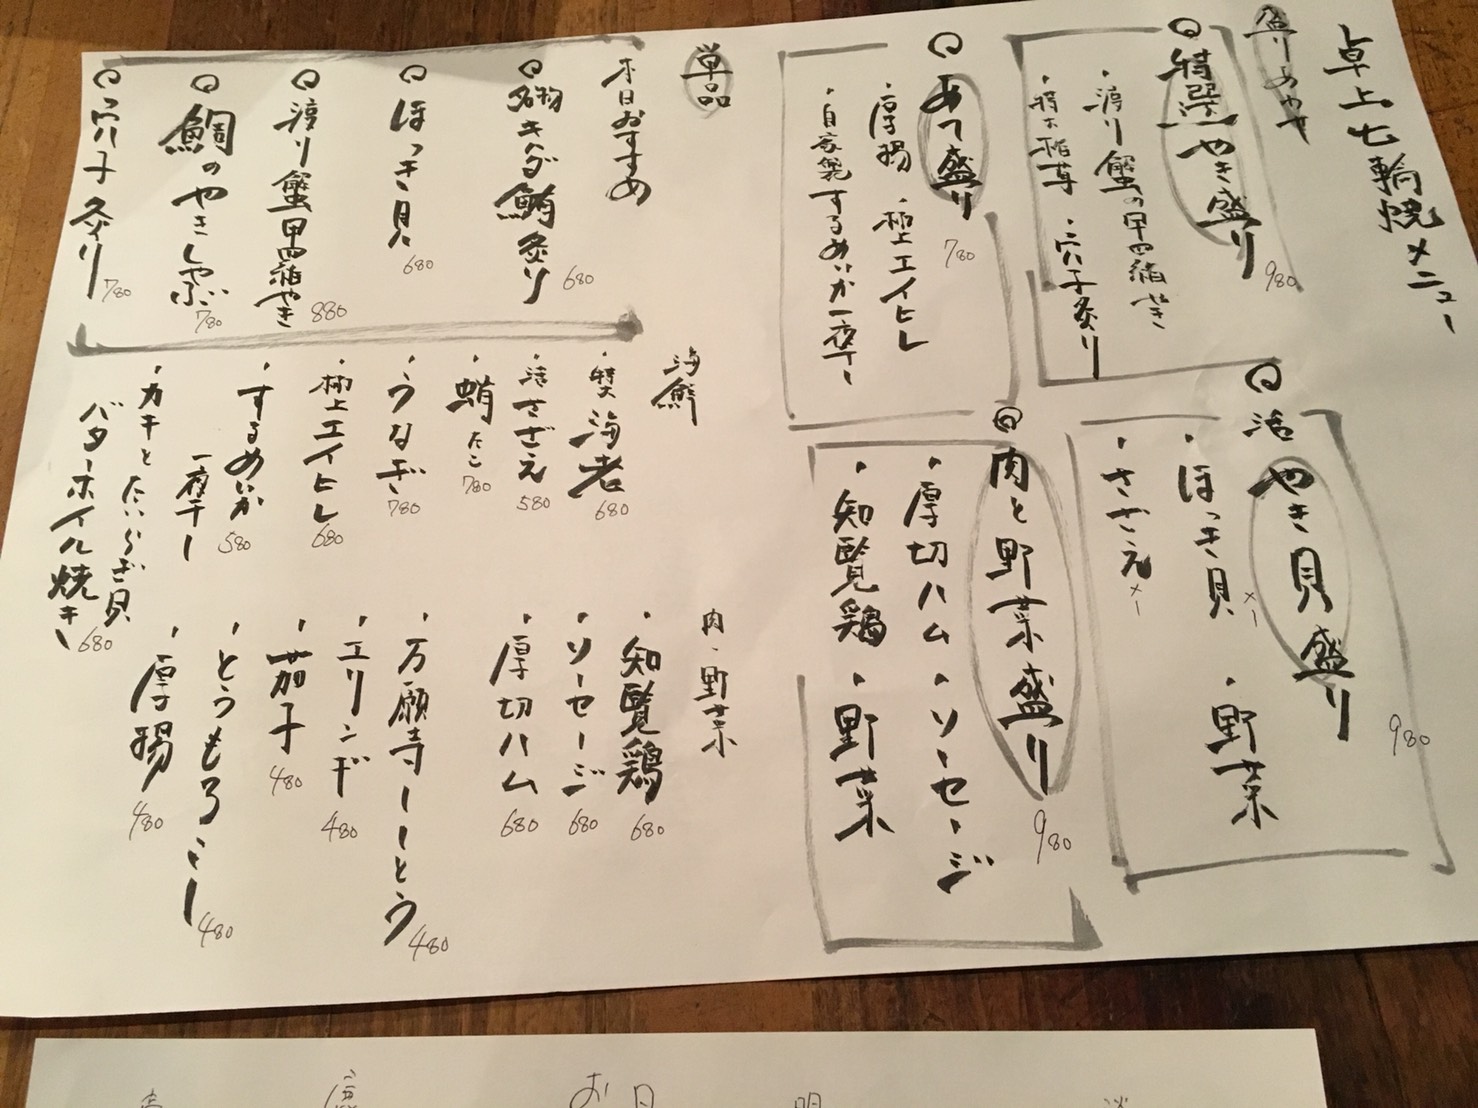 卓上七輪焼メニュー
盛りあわせ
特選やき盛り 980
・渡り蟹の甲羅焼き
・特大椎茸 ・穴子炙り
あて盛り 780
・厚揚 ・極上エイヒレ
・自家製するめいか一夜干し
活やき貝盛り 980
・ほっき貝 ・野菜
・さざえ
肉と野菜盛り 980
・厚切ハム ・ソーセージ
・知覧鶏 ・野菜
単品
本日おすすめ
キハダ鮪炙り 680
ほっき貝 680
渡り蟹甲羅やき 880
鯛のやきしゃぶ 780
穴子炙り 780
海鮮
・特大海老 680
・活さざえ 580
・蛸 たこ 780
・うなぎ 780
・極上エイヒレ 680
・するめいか 580
一夜干し
・カキとたいらぎ貝
バターホイル焼き 680
肉・野菜
・知覧鶏 680
・ソーセージ 680
・厚切ハム 680
・万願寺とうとう 480
・エリンギ 480
・茄子 480
・とうもろこし 480
・厚揚 480